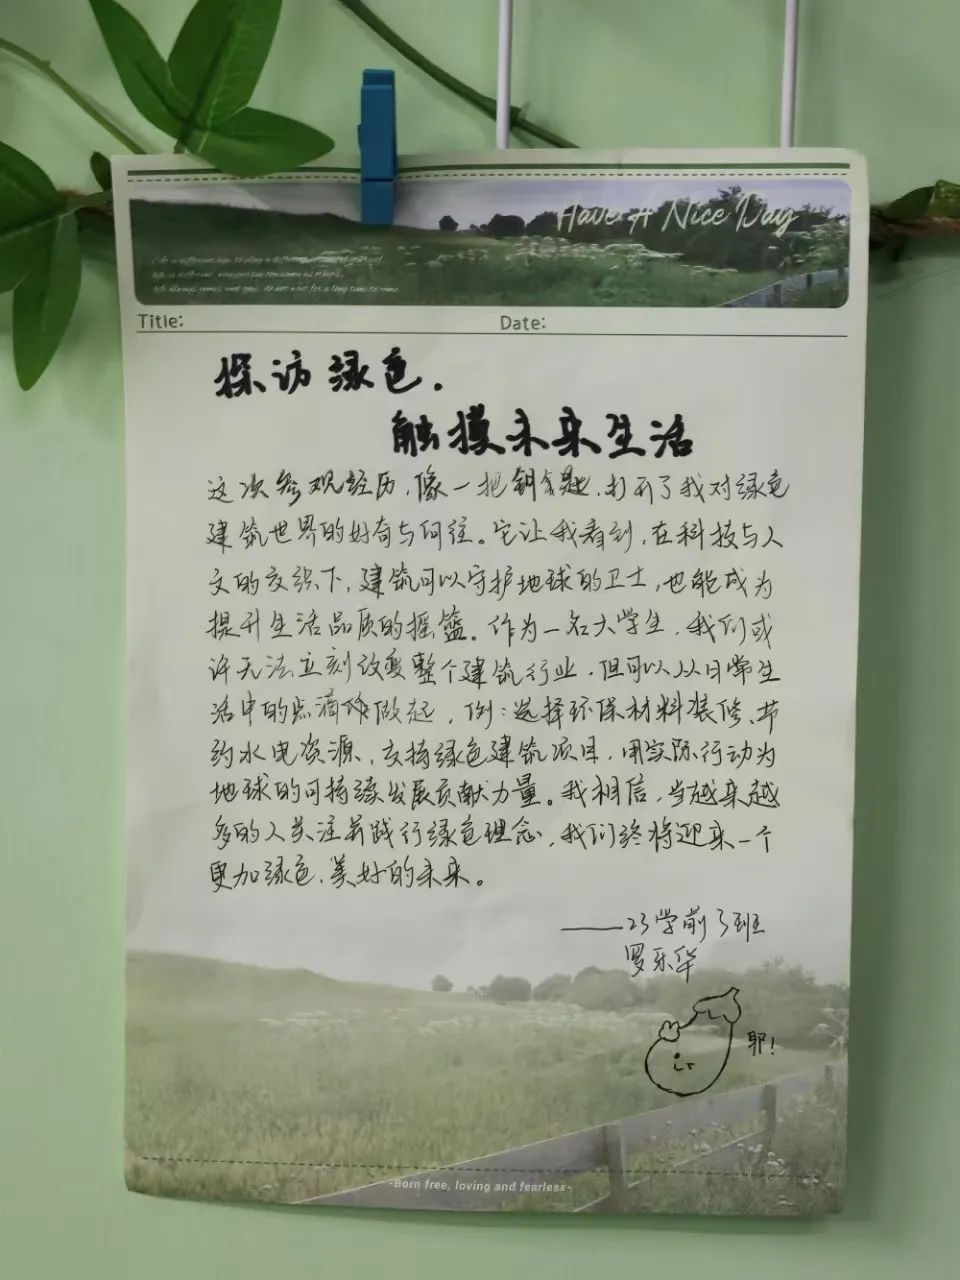 Have A Nice Day
Title:
Date:
探访绿色.
触摸未来生活
这次参观经历,像一把钥匙,打开了我对绿色
建筑世界的好奇与向往。它让我看到,在科技与人
文的交织下,建筑可以守护地球的卫士,也能成为
提升生活品质的摇篮。作为一名大学生,我们或
许无法立刻改变整个建筑行业,但可以从日常生
活中的点滴做起,例:选择环保材料装修、节
约水电资源、支持绿色建筑项目,用实际行动为
地球的可持续发展贡献力量。我相信,当越来越
多的人关注并践行绿色理念,我们终将迎来一个
更加绿色、美好的未来。
——23学前3班
罗乐华
耶!
-Born free, loving and fearless-